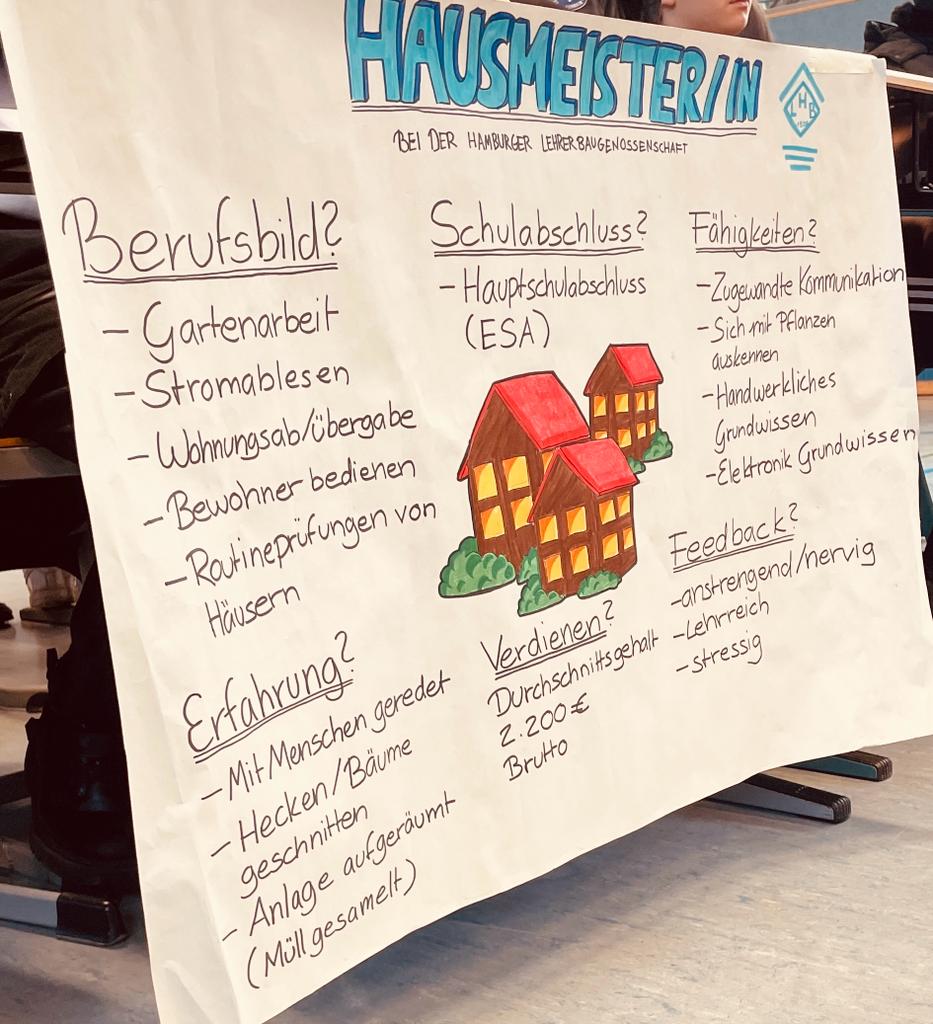 HAUSMEISTER/IN
BEI DER HAMBURGER LEHRERBAUGENOSSENSCHAFT
LHB
Berufsbild?
- Gartenarbeit
- Stromablesen
- Wohnungsab/übergabe
- Bewohner bedienen
- Routineprüfungen von
Häusern
Erfahrung?
- Mit Menschen geredet
- Hecken/Bäume
geschnitten
- Anlage aufgeräumt
(Müll gesamelt)
Schulabschluss?
- Hauptschulabschluss
(ESA)
Verdienen?
Durchschnittsgehalt
2.200€
Brutto
Fähigkeiten?
- Zugewandte Kommunikation
- Sich mit Pflanzen
auskennen
- Handwerkliches
Grundwissen
- Elektronik Grundwissen
Feedback?
- anstrengend/nervig
- Lehrreich
- stressig